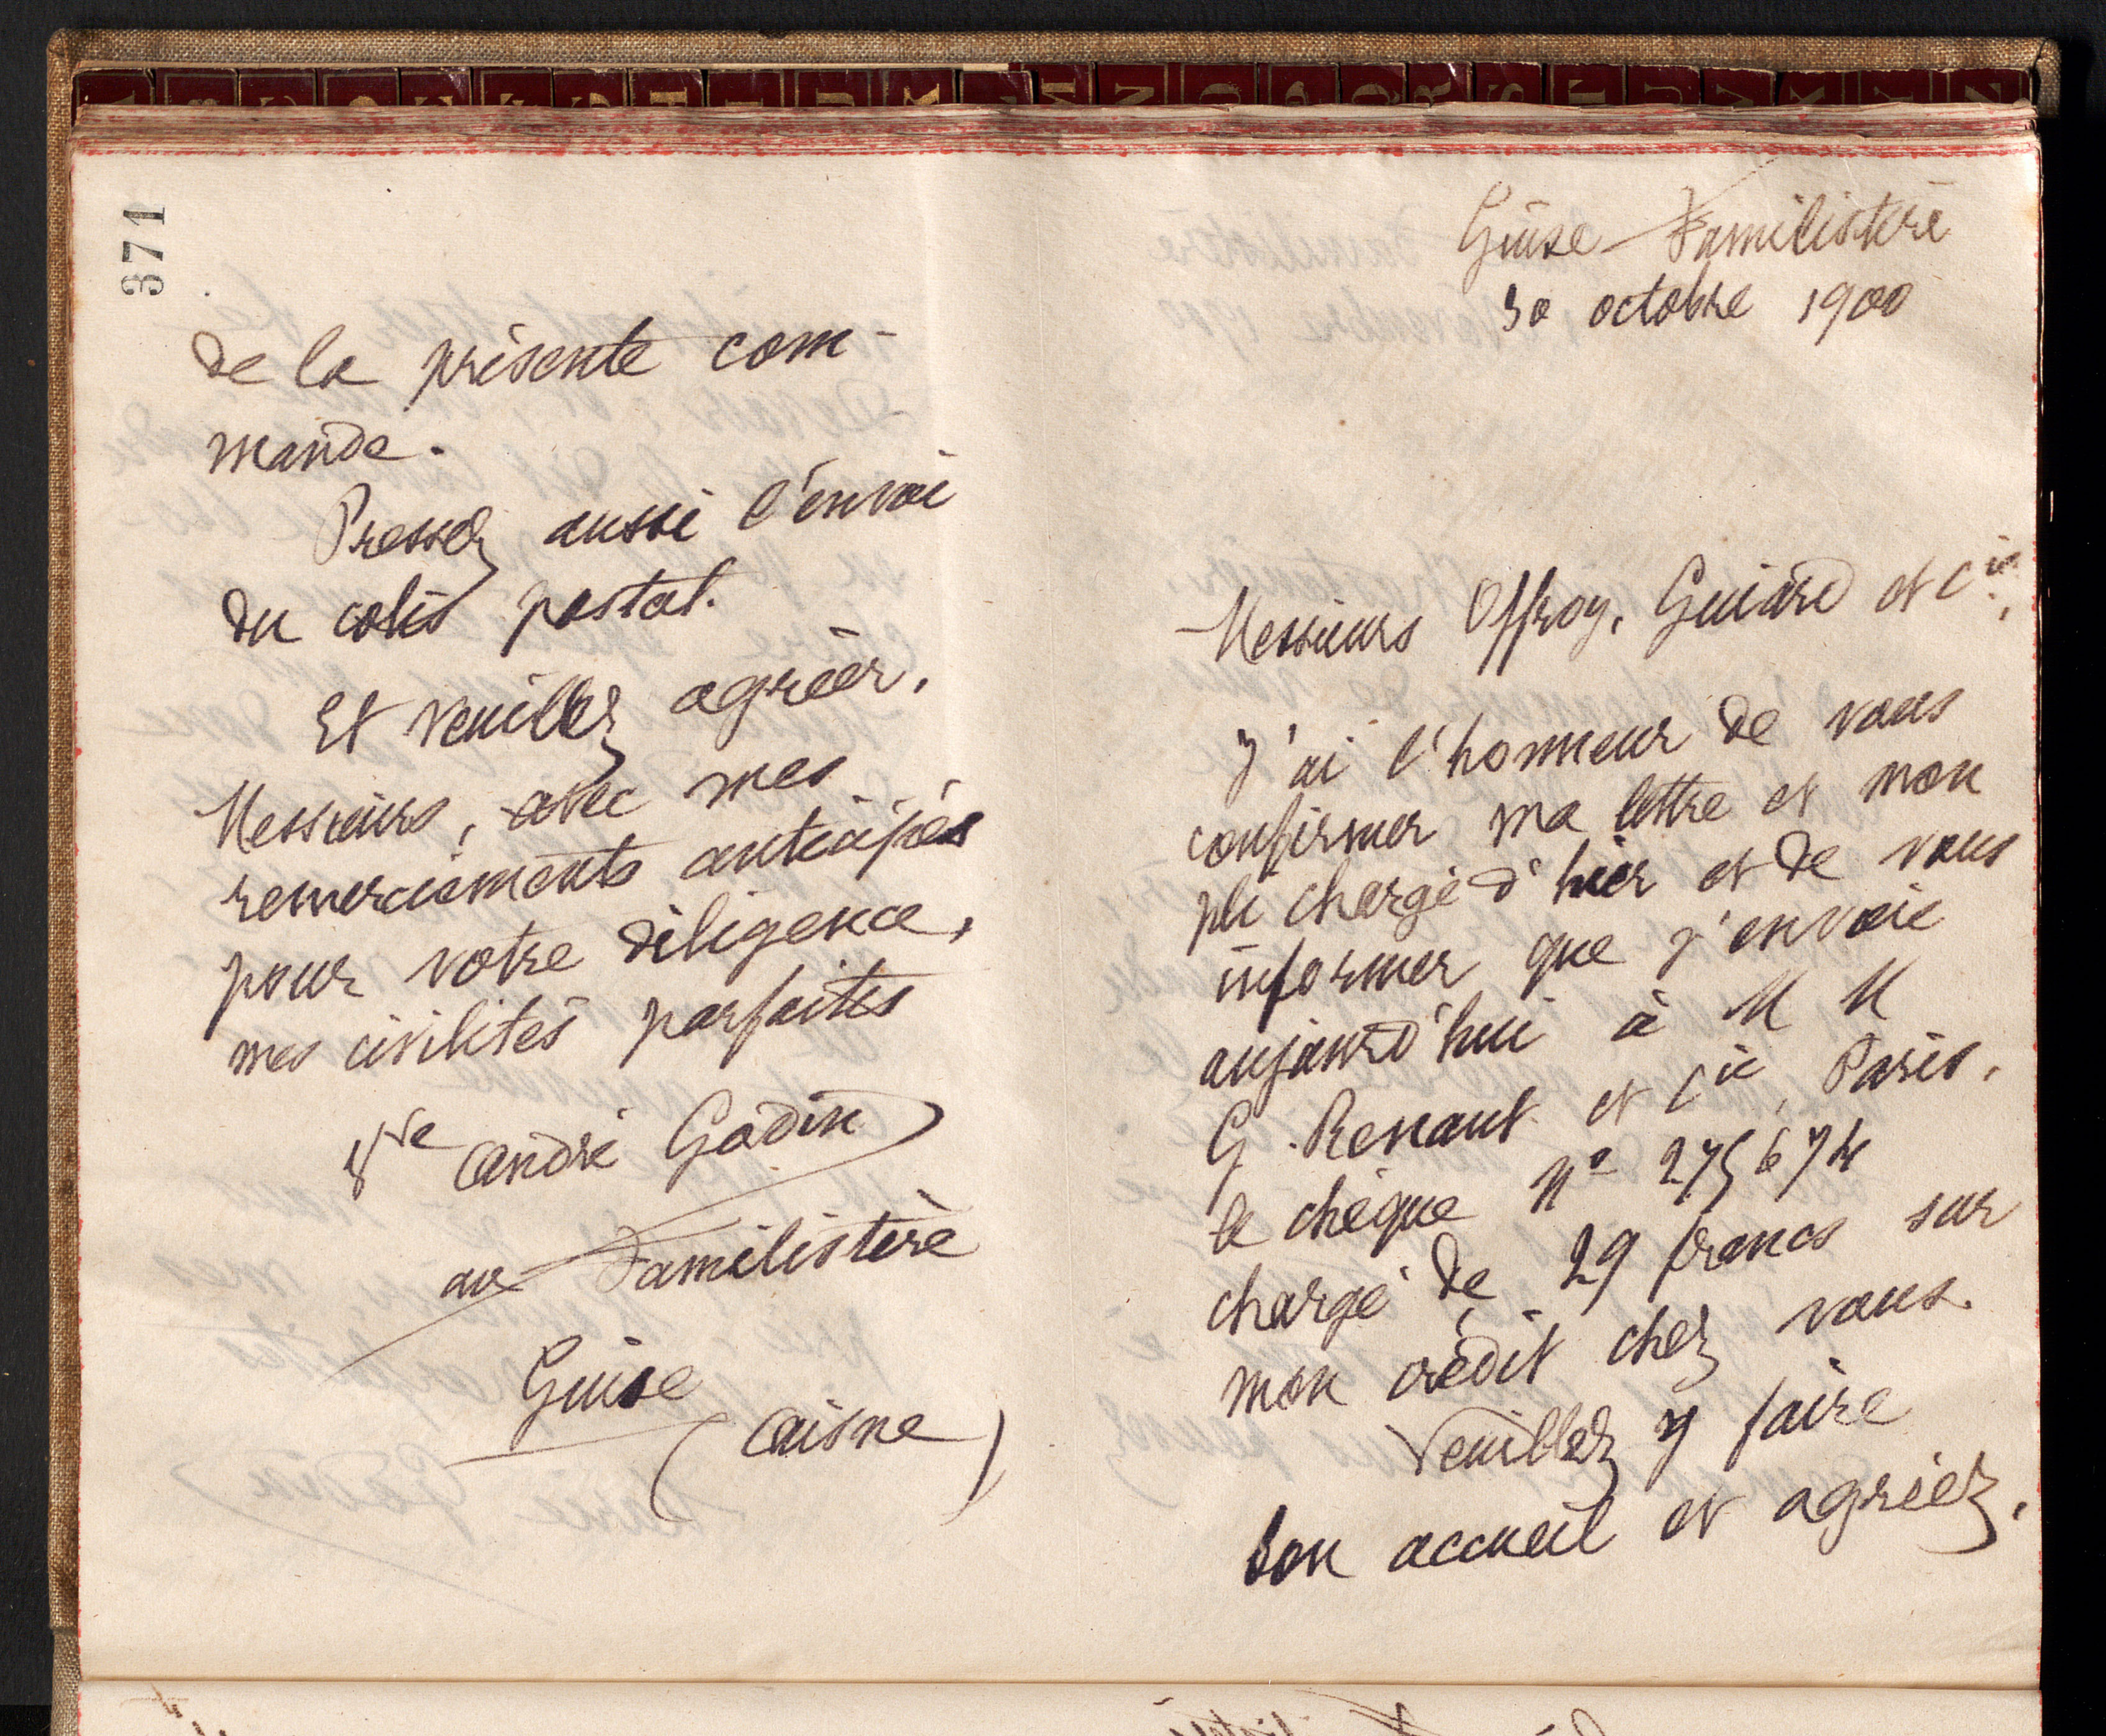 371
de la présente com-
mande.
Pressez aussi l'envoi
du colis postal.
Et veuillez agréer,
Messieurs, avec mes
remerciements anticipés
pour votre diligence,
mes civilités parfaites
Vve André Godin
au Familistère
Guise
(Aisne)
Guise Familistère
30 octobre 1900
Messieurs Offroy, Guiard et Cie,
J'ai l'honneur de vous
confirmer ma lettre et mon
pli chargé d'hier et de vous
informer que j'envoie
aujourd'hui à M M
G. Renaut et Cie, Paris,
le chèque No 275674
chargé de 29 francs sur
mon crédit chez vous.
Veuillez y faire
bon accueil et agréez,